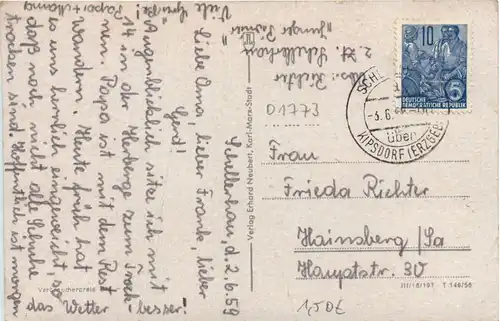 Schellerhau, d. 2.6.59
Liebe Oma, lieber Frank, lieber
Gerd!
Augenblicklich sitze ich mit
14 in der Herberge zum Trock-
nen. Papa ist mit dem Rest
Wandern. Heute früh hat
es uns herrlich eingeweicht, so
daß noch nicht alle Schuhe
trocken sind. Hoffentlich ist morgen
das Wetter besser!
Viele Grüße!
Papa + Mama
Verbraucherpreis
Verlag Erhard Neubert, Karl-Marx-Stadt
Abs.: Richter
z. Zt. Schellerhau
"Junger Pionier"
01773
10
5
DEUTSCHE
DEMOKRATISCHE REPUBLIK
-3.6.
über
KIPSDORF (ERZGEB)
Frau
Frieda Richter
Hainsberg / Sa
Hauptstr. 30
III/18/197 T 146/58
1,50€